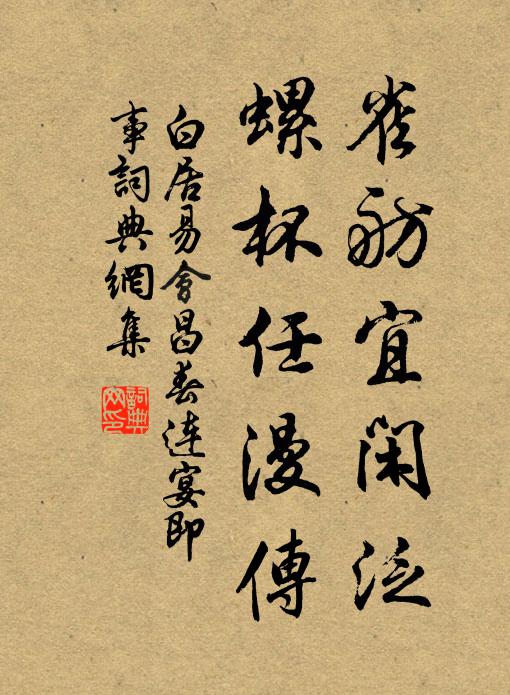 雀舫宜閑泛
螺杯任漫傳
白居易會昌春連宴即
事詞典網集
詞典
网印